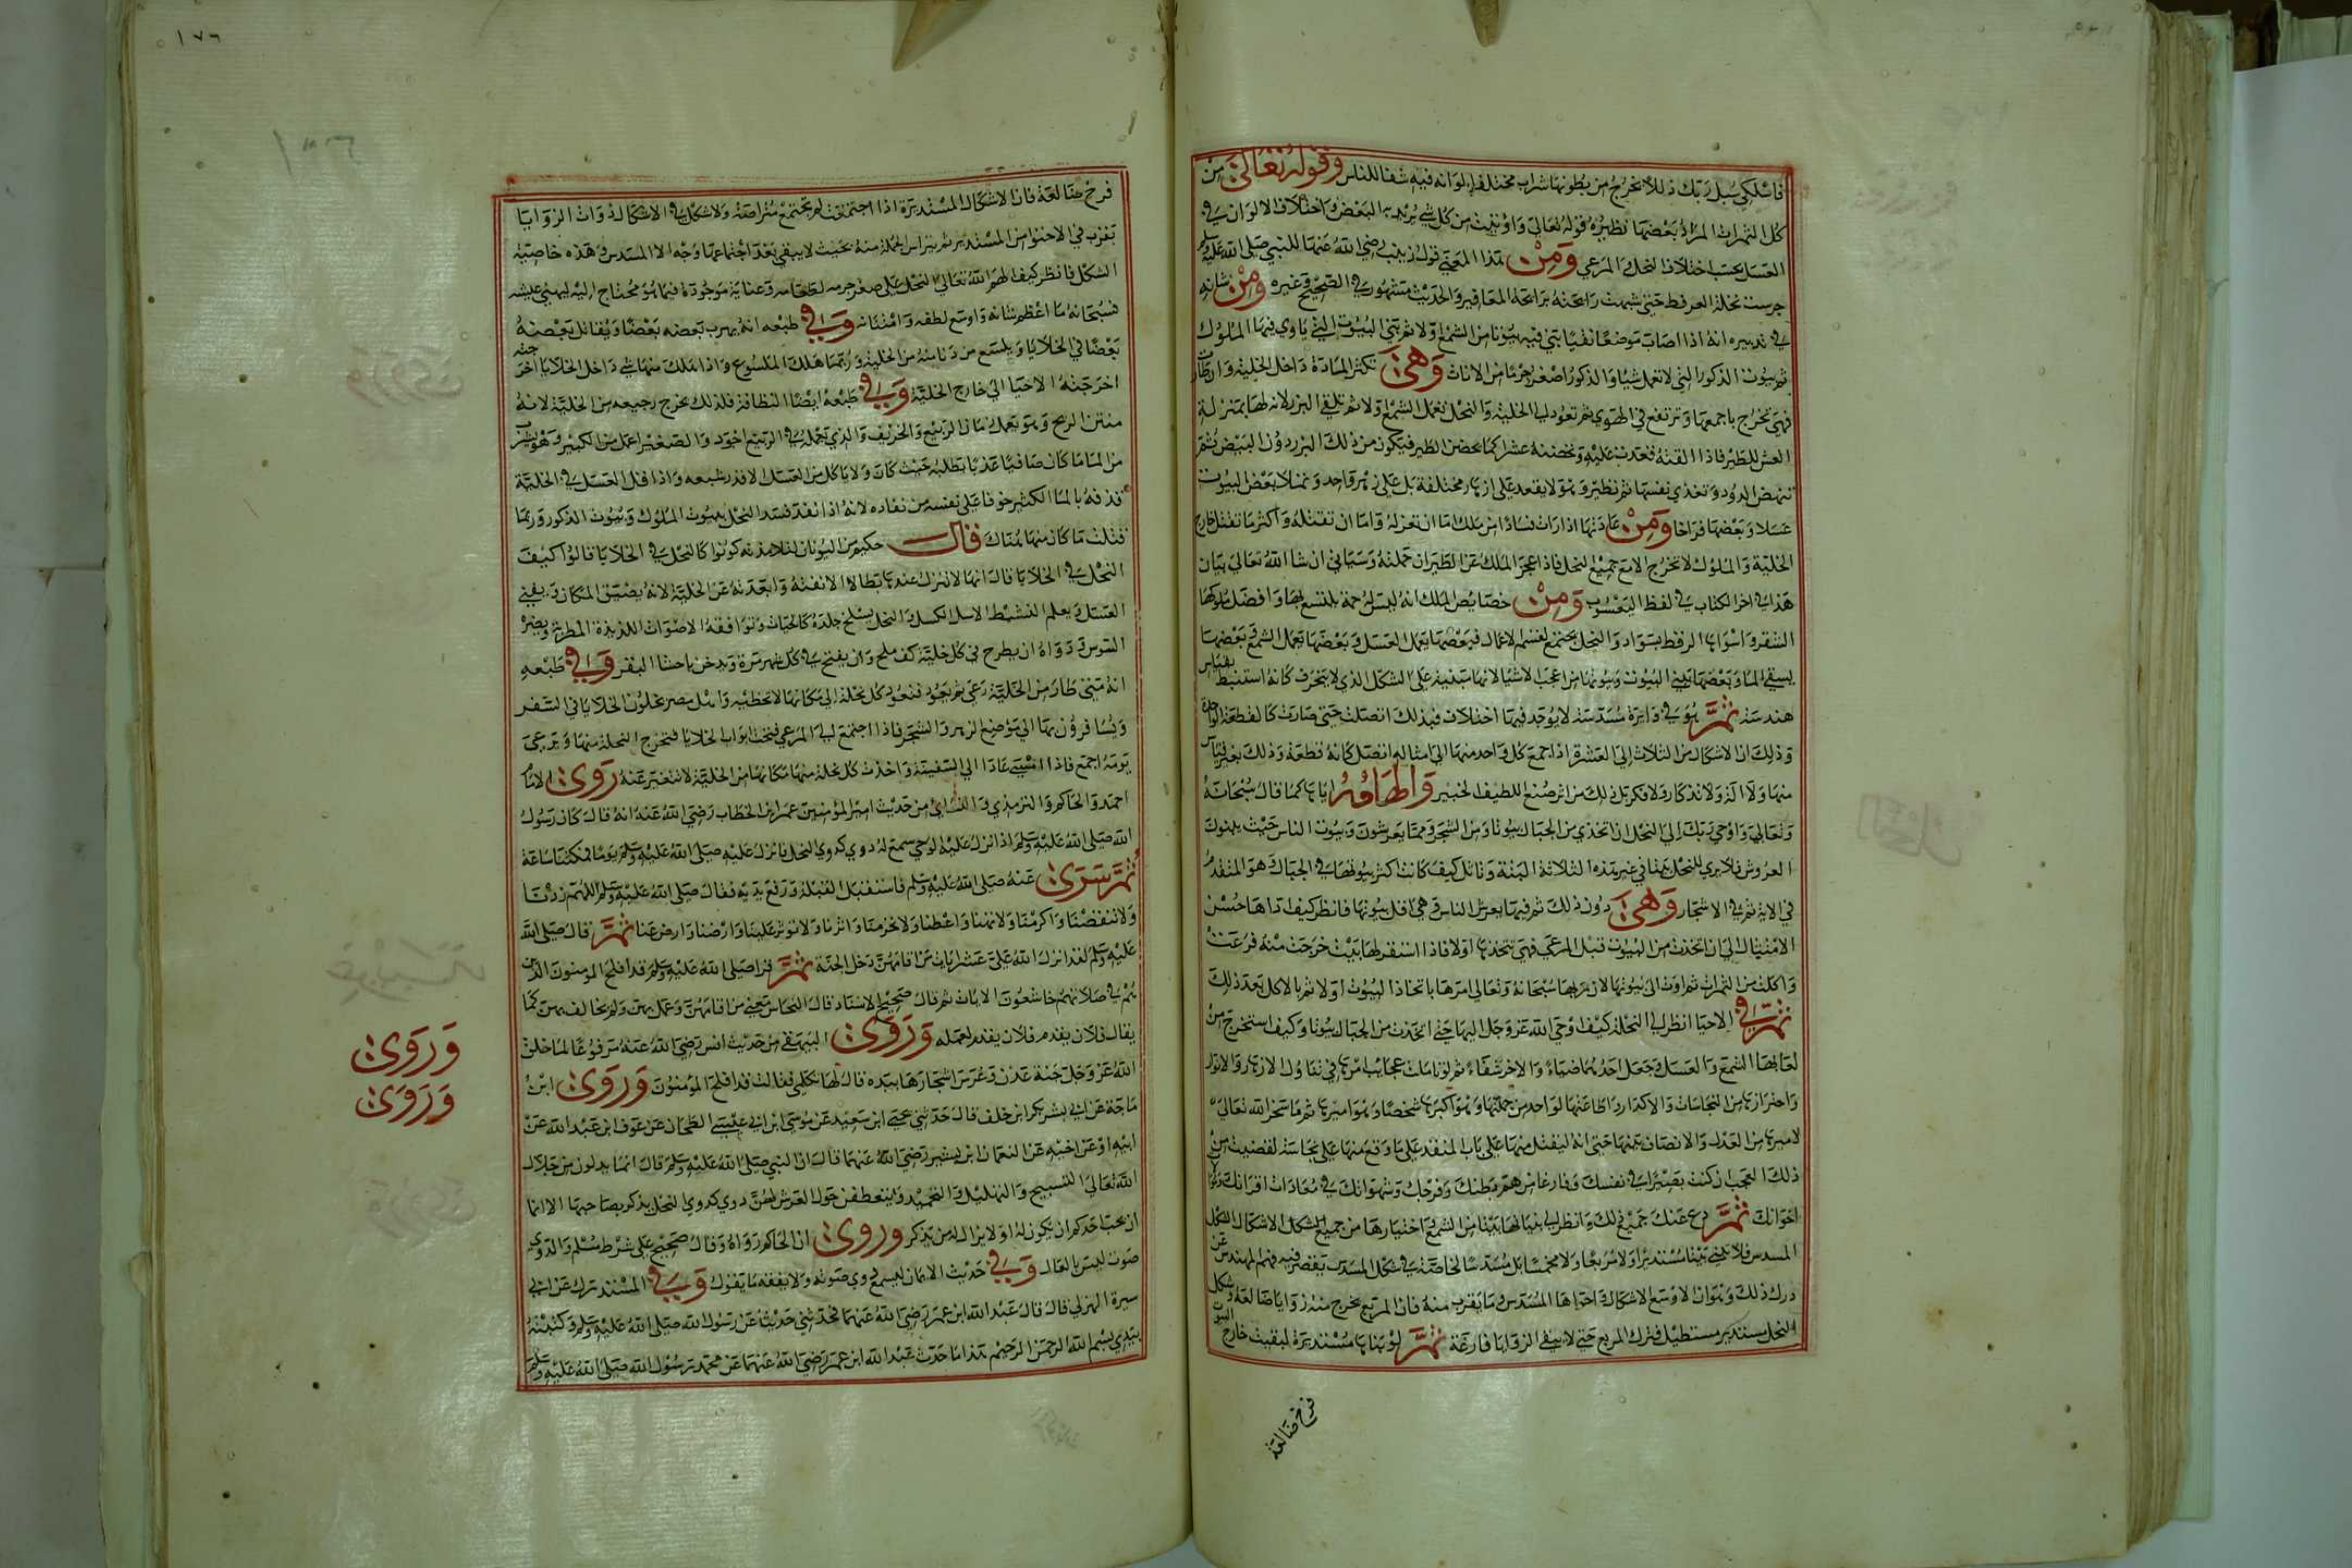 فاسلكي سبل ربك ذللا يخرج من بطونها شراب مختلف الوانه فيه شفا للناس وقوله تعالى من
كل الثمرات المراد بعضها نظيره قوله تعالى واوتيت من كل شي يريد به البعض واختلاف الالوان في
العسل بحسب اختلاف النحل والمرعي ومن هذا المعني قول زينب رضي الله عنها للنبي صلى الله عليه وسلم
جرست نحله العرفط حتى شبهت رايحته برايحة المغافير والحديث مشهور في الصحيح وغيره ومن شانه
في تدبيره انه اذا اصاب موضعا نقيا بني فيه بيوتا من الشمع اولا ثم بني البيوت التي ياوي فيها الملوك
ثم بيوت الذكور التي لا تعمل شيا والذكور اصغر جرما من الاناث وهي تكثر المادة داخل الخلية وان طارت
فهي تخرج باجمعها وترتفع في الهوي ثم تعود الى الخلية والنحل تعمل الشمع اولا ثم تلقي البزر لانه لها بمنزلة
العش للطير فاذا القته قعدت عليه وتحضنه عشرا كما يحضن الطير فيكون من ذلك البزر دود البيض ثم
تنهض الدود وتغذي نفسها ثم تطير وهو لا يقعد على ازهار مختلفة بل على زهر واحد وتملا بعض البيوت
عسلا وبعضها فراخا ومن عادتها اذا رات فسادا من ملك اما ان تعزله واما ان تقتله واكثر ما تقتل خارج
الخلية والملوك لا تخرج الا مع جميع النحل فاذا عجز الملك عن الطيران حملته وسياتي ان شا الله تعالي بيان
هذا في اخر الكتاب في لفظ اليعسوب ومن خصايص الملك انه ليس له حمة يلسع بها وافضل ملوكها
الشقر واسواها الرقط بسواد والنحل تجتمع لقسم الاعمال فبعضها يعمل العسل وبعضها يعمل الشمع وبعضها
يسقي الما وبعضها يبني البيوت وبيوتها من اعجب الاشيا لانها مبنية على الشكل الذي لا ينحرف كانه استنبط بقياس
هندسة ثم هو في دايرة مسدسة لا يوجد فيها اختلاف فبذلك اتصلت حتى صارت كالقطعة الواحدة
وذلك ان الاشكال من الثلاث الى العشرة اذا جمع كل واحد منها الى امثاله لم اتصل كانه قطعة وذلك بغير قياس
منها ولا الة ولا تذكار ولا فكر بل ذلك من اثر صنع اللطيف الخبير والهامه اياها كما قال سبحانه
وتعالي واوحي ربك الى النحل ان اتخذي من الجبال بيوتا ومن الشجر ومما يعرشون وبيوت الناس حيث يبنون
العروش فلا يري للنحل بيتا في غير هذه الثلاثة البتة وتامل كيف كانت اكثر بيوتها في الجبال وهو المتقدم
في الاية ثم في الاشجار وهي دون ذلك ثم فيما يعرش الناس وهي اقل بيوتها فانظر كيف اداها حسن
الامتثال الى ان اتخذت من البيوت قبل المرعي فهي تتخذها اولا فاذا استقر لها بيت خرجت منه فرعت
واكلت من الثمرات ثم اوت الى بيوتها لان ربها سبحانه وتعالى امرها باتخاذ البيوت اولا ثم بالاكل بعد ذلك
ثم في الاحيا انظر الى النحلة كيف اوحي الله عز وجل اليها حتى اتخذت من الجبال بيوتا وكيف استخرج من
لعابها الشمع والعسل وجعل احدهما ضياء والاخر شفاء ثم لو تاملت عجايب امرها في تناولها الازهار والانوار
واحترازها من النجاسات والاقذار وطاعتها لواحد من جملتها وهو اكبرها شخصا وهو اميرها ثم ما سخر الله تعالي
لاميرها من العدل والانصاف بينها حتى انه ليقتل منها على باب المنفذ على ما وقع منها على نجاسة لقضيت من
ذلك العجب ان كنت بصيرا في نفسك وفارغا من هم بطنك وفرجك وشهواتك في معادات اقرانك
اخوانك ثم دع عنك جميع ذلك وانظر الى بنيانها بيتا من الشمع واختيارها من جميع الاشكال الشكل
المسدس فلا تبني بيتا مستديرا ولا مربعا ولا مخمسا بل مسدسا لخاصية في شكل المسدس يقصر فيه فهم المهندس عن
درك ذلك وهو ان اوسع الاشكال واحواها المسدس وما يقرب منه فان المربع يخرج منه زوايا ضالعة وشكل
النحل مستدير مستطيل فترك المربع حتى لا يبقي الزوايا فارغة ثم لو بناها مستديرة لبقيت خارج البيوت
فرج ضالعة
١٧٦
فرج ضالعة فان الاشكال المستديرة اذا اجتمعت لم تجتمع متراصة ولا شكل في الاشكال ذوات الزوايا
يقرب في الاحتوا من المستدير ثم يتراص الجملة منه بحيث لا يبقي بعد اجتماعها وجه الا المسدس وهذه خاصية
الشكل فانظر كيف الهم الله تعالى النحل على صغر جرمه لطفا به وعناية بوجوده فيما هو محتاج اليه ليهني عيشه
فسبحانه ما اعظم شانه واوسع لطفه وامتنانه وفي طبعه انه يهرب بعضه بعضا ويقاتل بعضه
بعضا في الخلايا ويلسع من دنا منه من الخلية وربما هلك الملسوع واذا هلك منها شي داخل الخلايا اخرجته
اخرجته الاحيا الى خارج الخلية وفي طبعه ايضا النظافة فلذلك يخرج رجيعه من الخلية لانه
منتن الريح وهو يعمل زمان الربيع والخريف والذي يعمله في الربيع اجود والصغير اعمل من الكبير وهو يشرب
من الما ما كان صافيا عذبا يطلبه حيث كان ولا ياكل من العسل الا قدر شبعه واذا قل العسل في الخلية
قذفه بالما الكثير خوفا على نفسه من نفاده لانه اذا نفد فسد النحل بيوت الملوك وبيوت الذكور وربما
قتلت ما كان منها هناك قال حكيم من اليونان لتلامذته كونوا كالنحل في الخلايا قالوا كيف
النحل في الخلايا قال انها لا تترك عندها بطالا الا نفته وابعدته عن الخلية لانه يضيق المكان ويفني
العسل ويعلم النشيط الكسل والنحل يسلخ جلده كالحيات وتوافقه الاصوات اللذيذة المطربة ويضره
السوس ودواه ان يطرح في كل خلية كف ملح وان يفتح في كل شهر مرة ويدخن باخثا البقر وفي طبعه
انه متى طار من الخلية رعي ثم يعود فتعود كل نحلة الى مكانها لا تخطيه واهل مصر يحولون الخلايا في السفر
ويسافرون بها الى موضع الزهر والشجر فاذا اجتمع الى المرعي فتحت ابواب الخلايا فتخرج النحلة منها وترعي
يومه اجمع فاذا امسي عاد الى السفينة واخذت كل نحلة منها مكانها من الخلية لا تتغير عنه روى الامام
احمد والحاكم والترمذي والنسائي من حديث امير المؤمنين عمر ابن الخطاب رضي الله عنه انه قال كان رسول
الله صلى الله عليه وسلم اذا نزل عليه الوحي سمع له دوي كدوي النحل فانزل عليه صلى الله عليه وسلم يوما فمكثنا ساعة
ثم سرى عنه صلى الله عليه وسلم فاستقبل القبلة ورفع يديه فقال صلى الله عليه وسلم اللهم زدنا
ولا تنقصنا واكرمنا ولا تهنا واعطنا ولا تحرمنا واثرنا ولا توثر علينا وارضنا وارض عنا ثم قال صلى الله
عليه وسلم لقد انزل الله علي عشر ايات من اقامهن دخل الجنة ثم قرا صلى الله عليه وسلم قد افلح المومنون الذين
هم في صلاتهم خاشعون الايات ثم قال صحيح الاسناد قال النحاس معني من اقامهن وعمل بهن ولم يخالف بهن كما
يقال فلان يقدم فلان يقدم لعمله وروى البيهقي من حديث انس رضي الله عنه مرفوعا لما خلق
الله عز وجل جنة عدن وغرس اشجارها بيده قال لها تكلمي فقالت قد افلح المؤمنون وروى ابن
ماجة عن ابي بشر بكر ابن خلف قال حدثني يحيي ابن سعيد عن موسي ابن ابي عيسي الطحان عن عوف ابن عبد الله عن
ابيه او عن اخيه عن النعمان ابن بشير رضي الله عنهما قال ان النبي صلى الله عليه وسلم قال انما يذكرون من جلال
الله تعالى التسبيح والتهليل والتحميد وينعطفن حول العرش لهن دوي كدوي النحل يذكر بصاحبها الا اما
ان يحب احدكم ان يكون له او لا يزال له من يذكر وروى ان الحاكم رواه وقال صحيح على شرط مسلم والدوي
صوت ليس بالعال وفي حديث الايمان يسمع دوي صوته ولا يفقه ما يقول وفي المستدرك عن ابي
سبرة الهزلي قال قال عبد الله ابن عمر رضي الله عنهما فحدثني حديثا عن رسول الله صلى الله عليه وسلم وكتبته
بيدي بسم الله الرحمن الرحيم هذا ما حدث عبد الله ابن عمر رضي الله عنهما عن محمد رسول الله صلى الله عليه وسلم
وروى
وروى